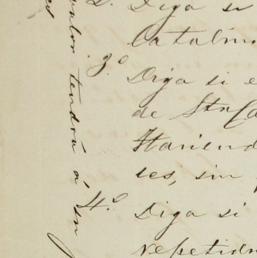 2º Diga si
Catalin
3º Diga si e
de Sta Ca
Haciend
ses, sin
4º Diga si
repetid
valor tendrá á su